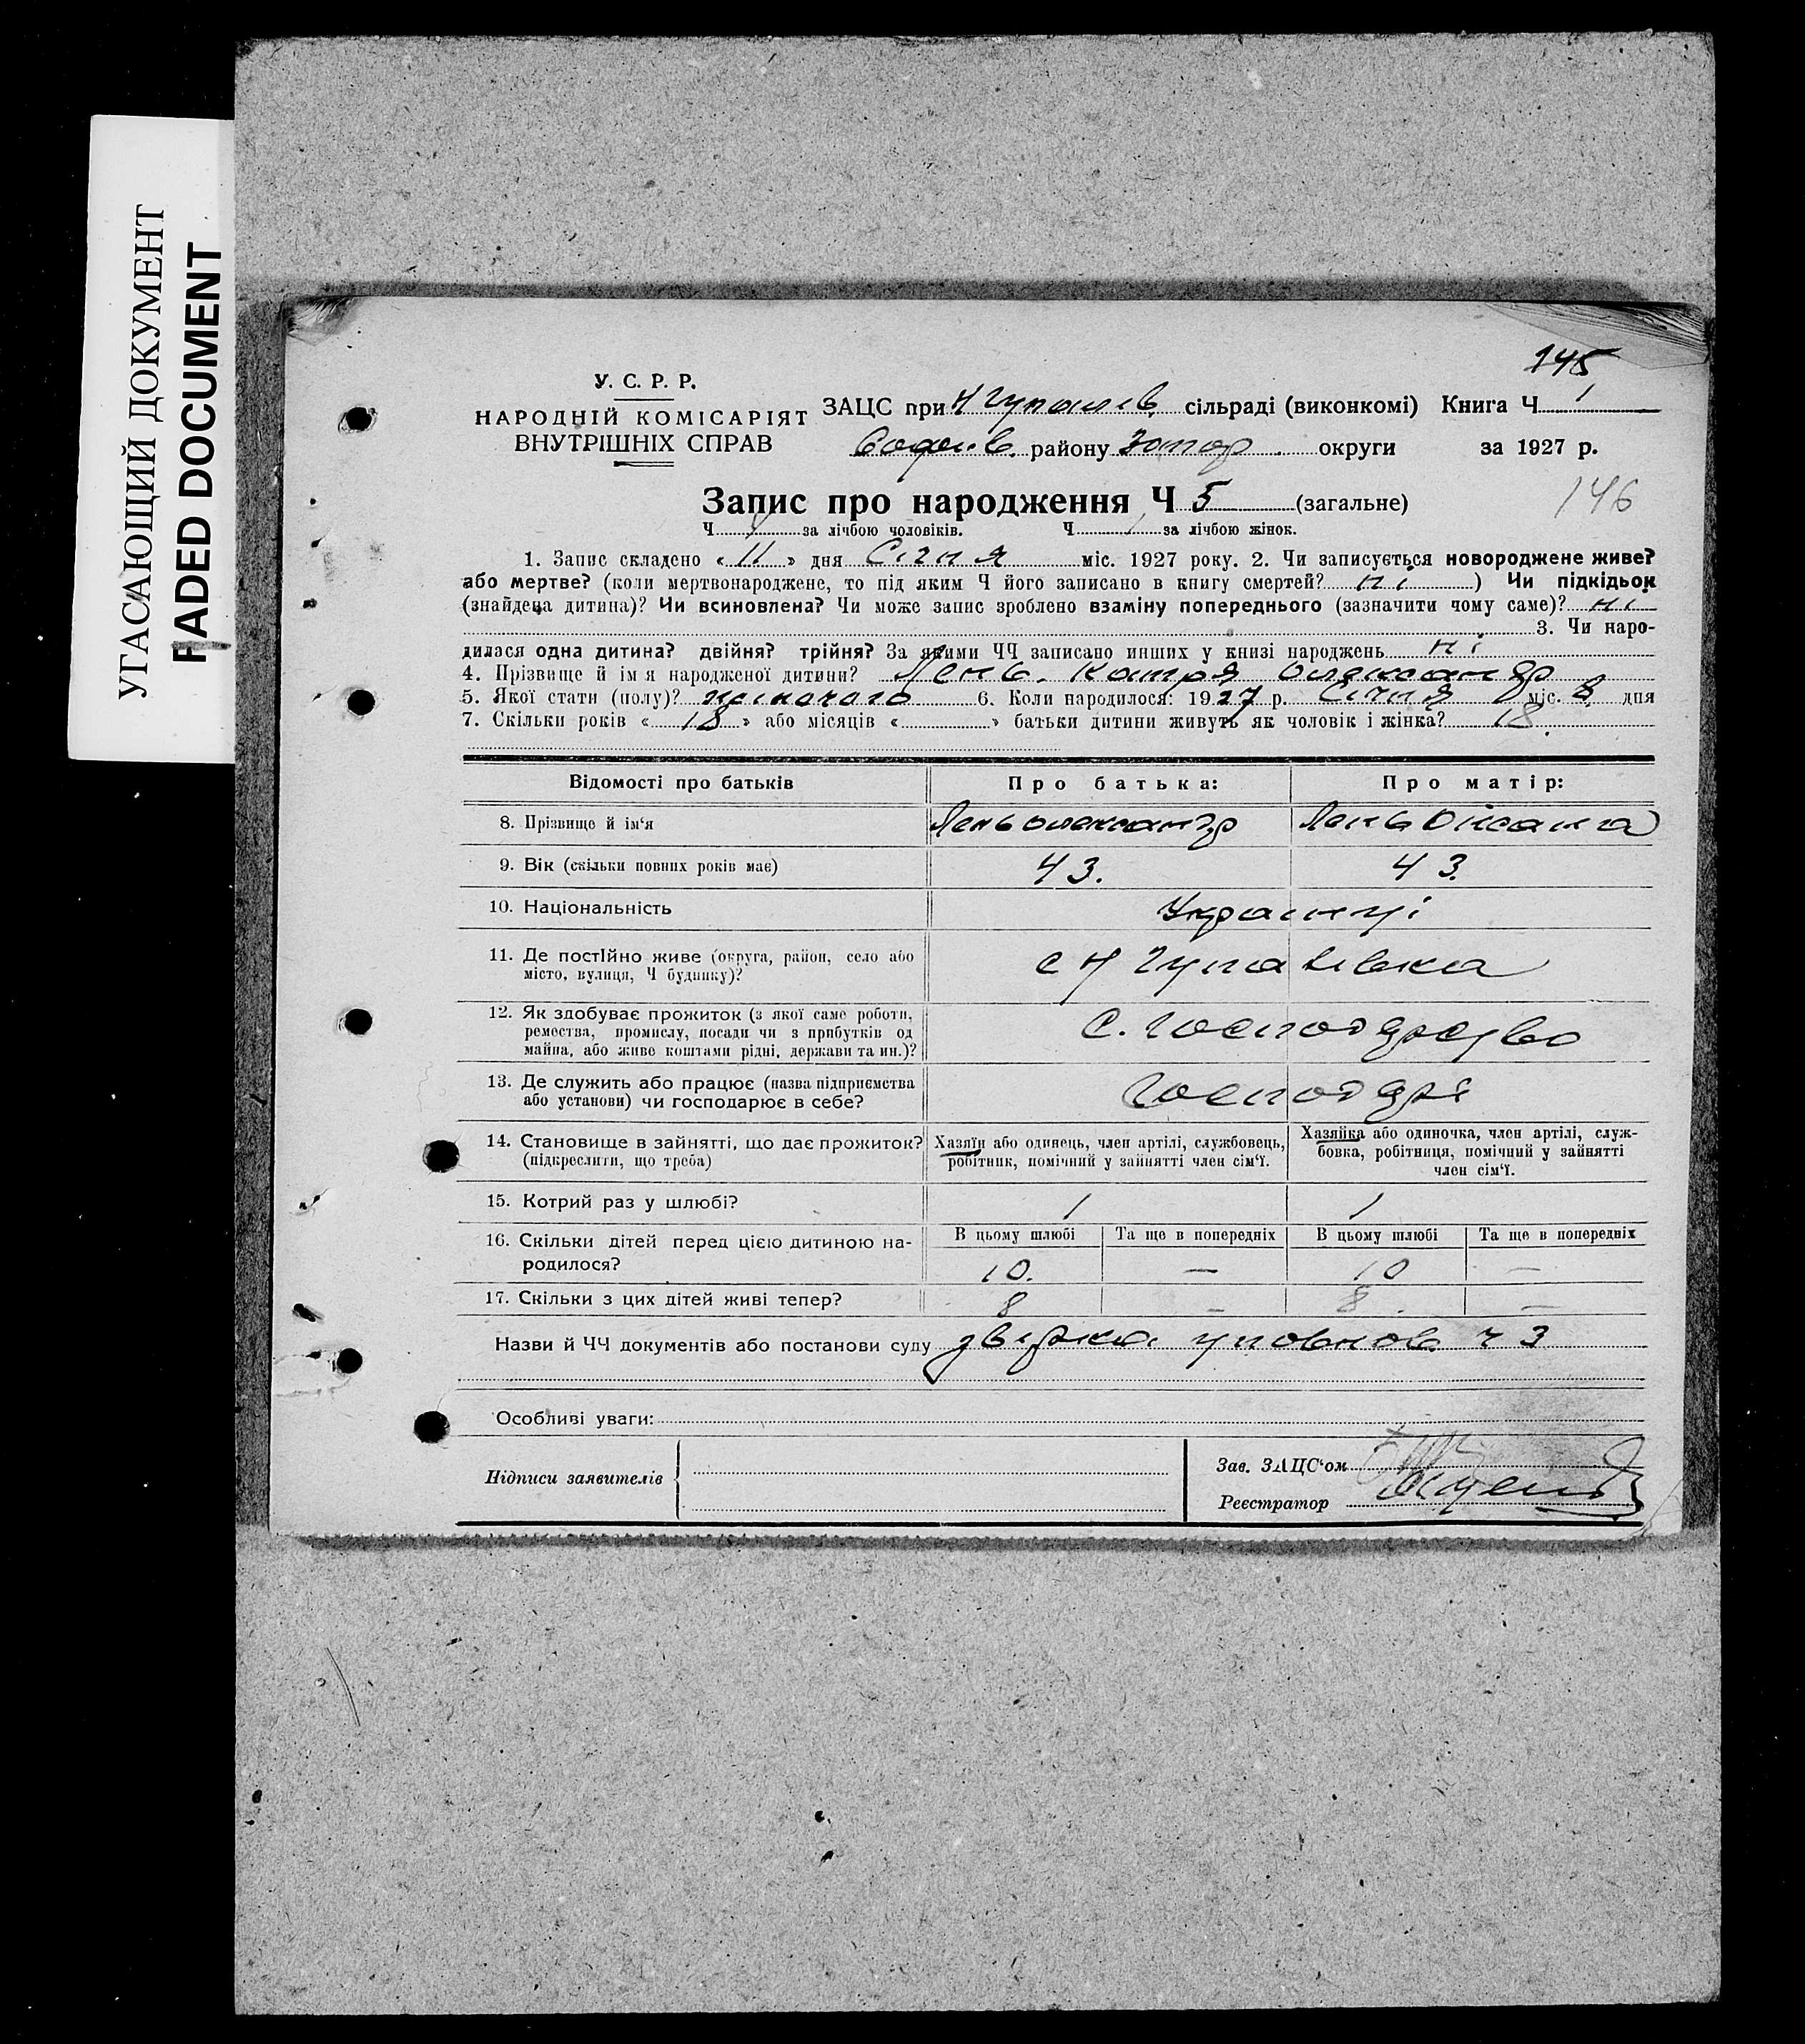 УГАСАЮЩИЙ ДОКУМЕНТ
FADED DOCUMENT
145
У. С. Р. Р.
НАРОДНІЙ КОМІСАРІЯТ
ВНУТРІШНІХ СПРАВ
ЗАЦС при Н Гупалів. сільраді (виконкомі) Книга Ч 1
Софіїв. району Запор округи за 1927 р.
146
Запис про народження Ч 5 (загальне)
Ч за лічбою чоловіків. Ч 1 за лічбою жінок.
1. Запис складено « 11 » дня Січня міс. 1927 року. 2. Чи записується новороджене живе?
або мертве? (коли мертвонароджене, то під яким Ч його записано в книгу смертей? ні ) Чи підкідьок
(знайдена дитина)? Чи всиновлена? Чи може запис зроблено взаміну попереднього (зазначити чому саме)? ні
3. Чи наро-
дилася одна дитина? двійня? трійня? За якими ЧЧ записано инших у книзі народжень ні
4. Прізвище й ім'я народженої дитини? Лень Катря Олександр
5. Якої стати (полу)? жіночого 6. Коли народилося: 1927 р. Січня міс. 8 дня
7. Скільки років « 18 » або місяців « » батьки дитини живуть як чоловік і жінка? 18.
Відомості про батьків
Про батька:
Про матір:
8. Прізвище й ім'я
Лень Олександр
Лень Оксана
9. Вік (скільки повних років має)
43.
43.
10. Національність
Украинці
11. Де постІйно живе (округа, район, село або
місто, вулиця, Ч будинку)?
с Н Гупалівка
12. Як здобуває прожиток (з якої саме роботи,
ремества, промислу, посади чи з прибутків од
майна, або живе коштами рідні, держави та ин.)?
С. Господарство
13. Де служить або працює (назва підприємства
або установи) чи господарює в себе?
Господарі
14. Становище в зайнятті, що дає прожиток?
(підкреслити, що треба)
Хазяїн або одинець, член артілі, службовець,
робітник, помічний у зайнятті член сім'ї.
Хазяйка або одиночка, член артілі, служ-
бовка, робітниця, помічний у зайнятті
член сім'ї.
15. Котрий раз у шлюбі?
1
1
16. Скільки дітей перед цією дитиною на-
родилося?
В цьому шлюбі
Та ще в попередніх
В цьому шлюбі
Та ще в попередніх
10. — 10 —
17. Скільки з цих дітей живі тепер?
8 — 8. —
Назви й ЧЧ документів або постанови суду ч 3
Особливі уваги:
Підписи заявителів
Зав. ЗАЦС'ом
Реєстратор